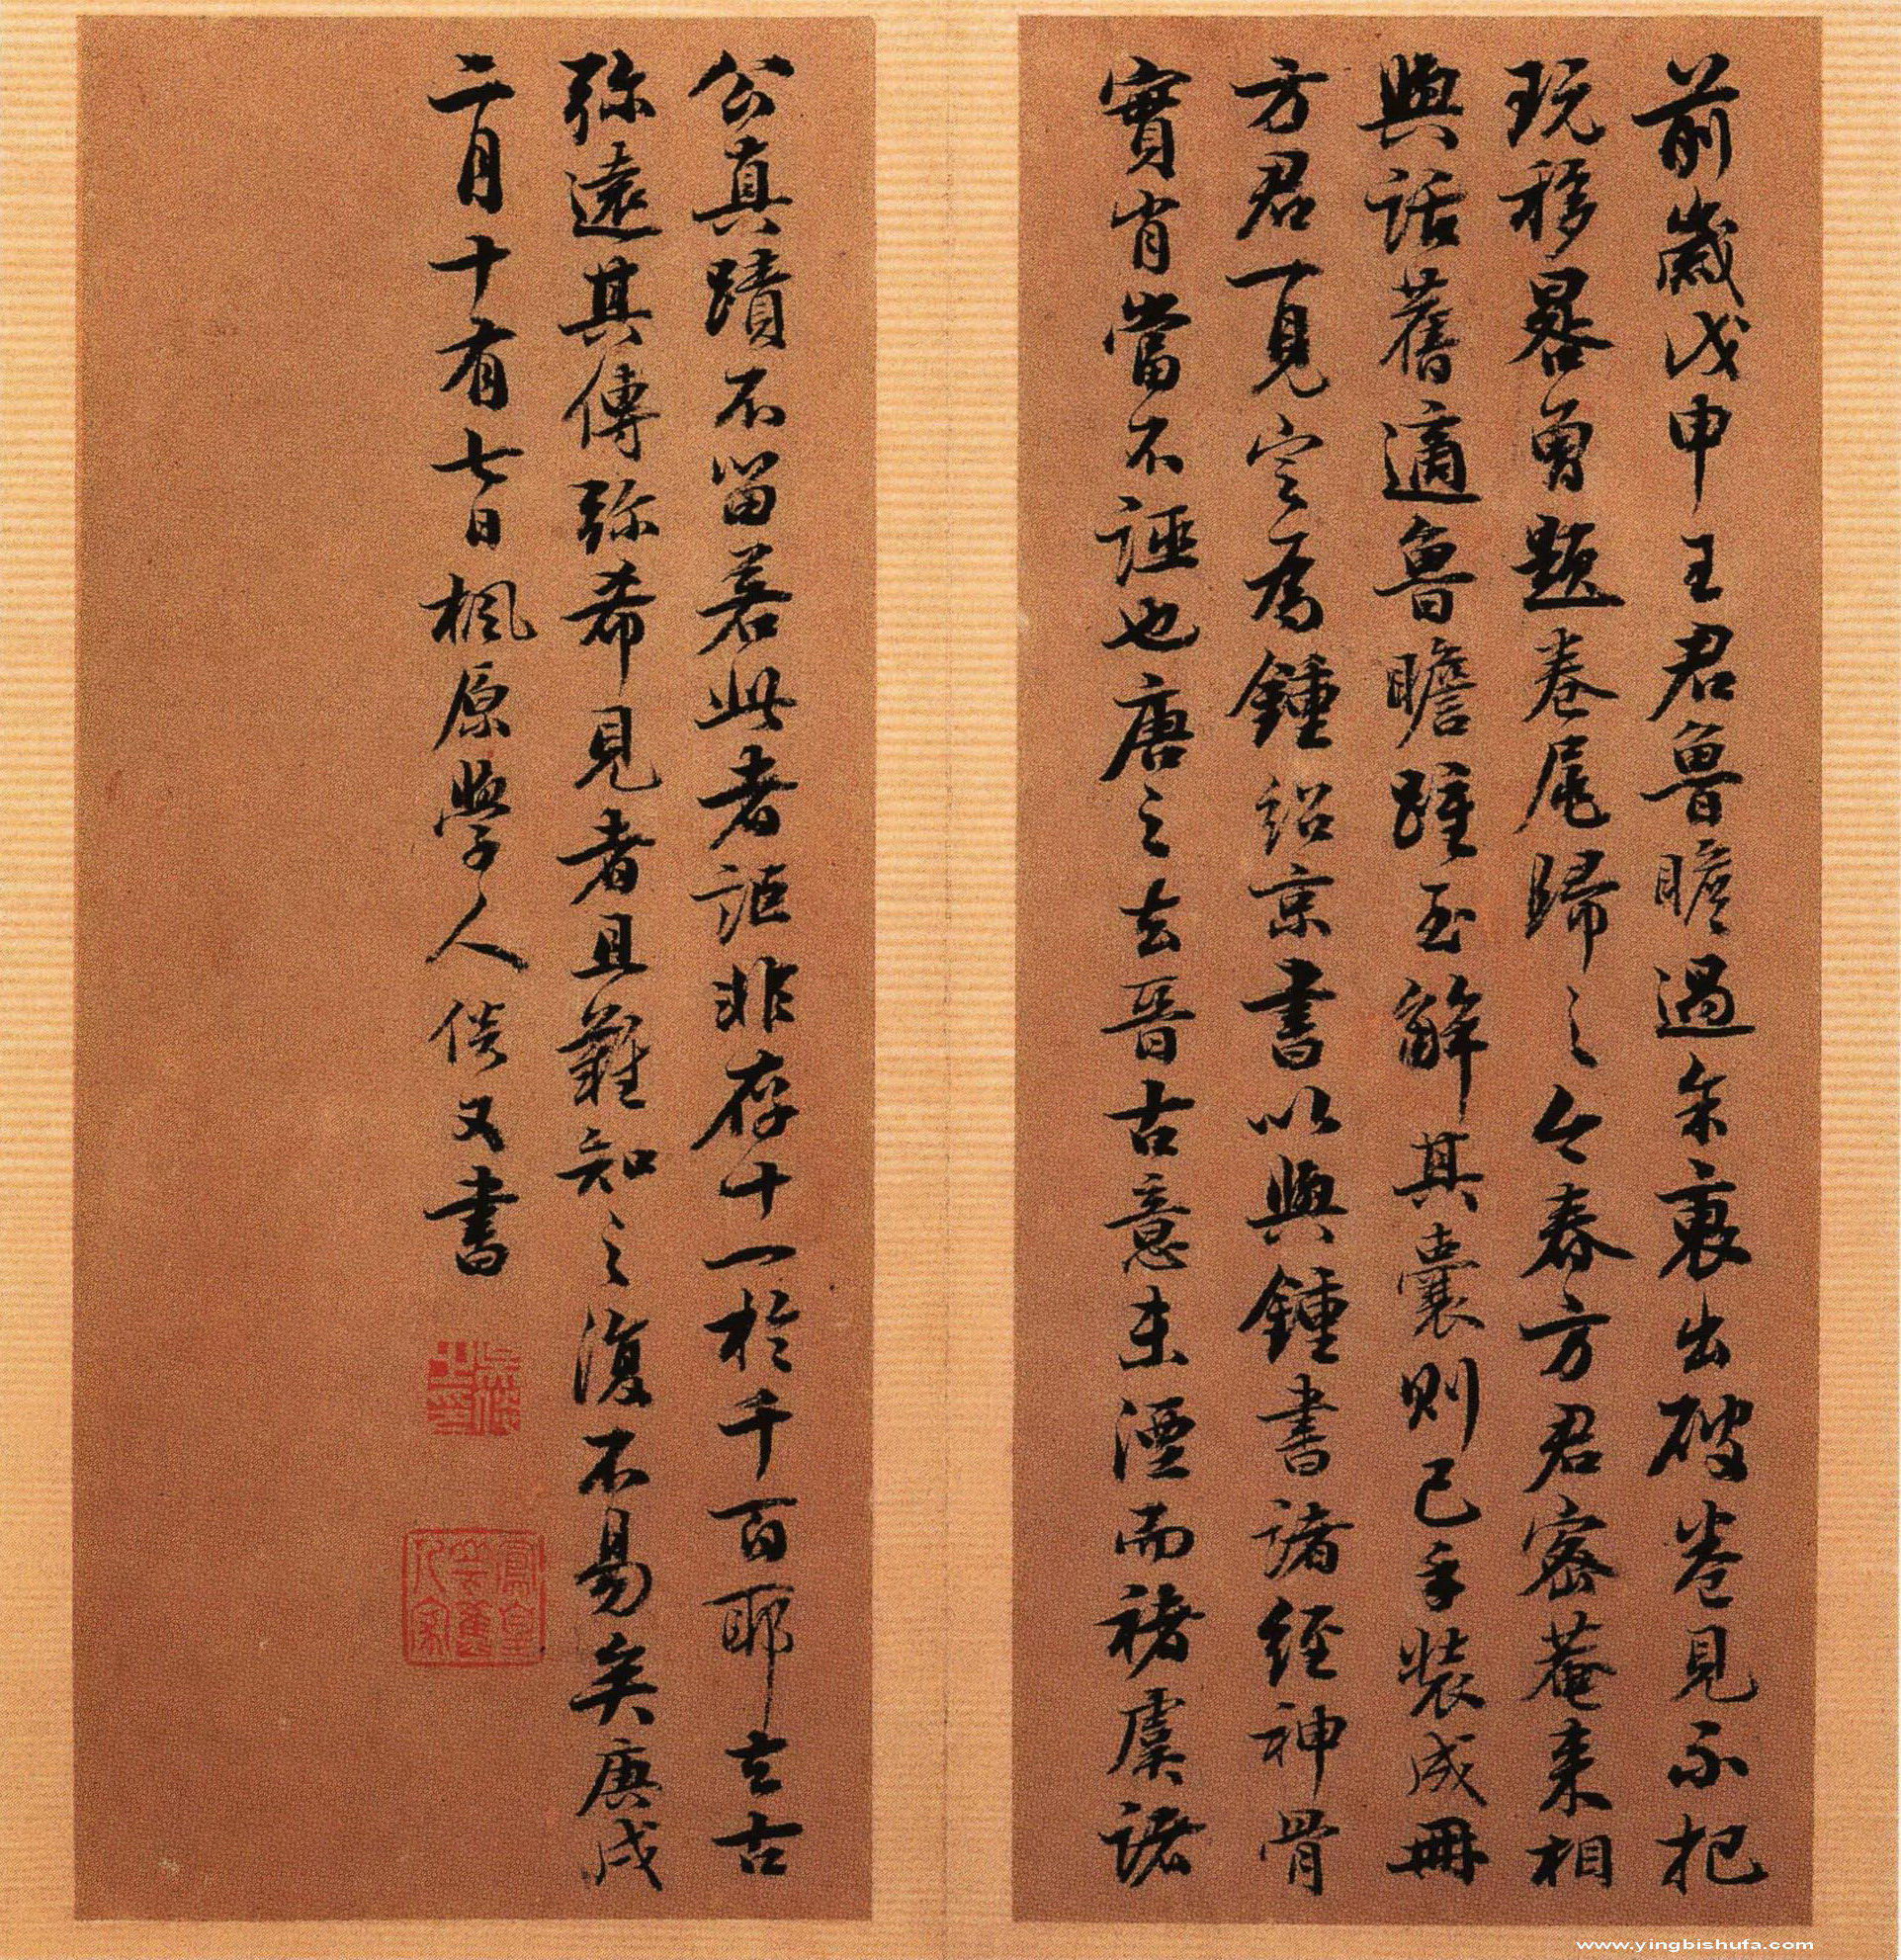 前歲戊申王君魯瞻過余裏出破卷見示把
玩移晷曾題卷尾歸之今春方君密菴來相
與話舊適魯瞻踵至解其囊則已手裝成冊
方君一見定為鍾紹京書以與鍾書諸經神骨
實肖當不誣也唐之去晉古意未湮而褚虞諸
公真蹟不留若此者詎非存十一於千百耶去古
弥遠其傳弥希見者且難知之復不易矣庚戌
二月十有七日楓原學人俊又書
www.yingbishufa.com